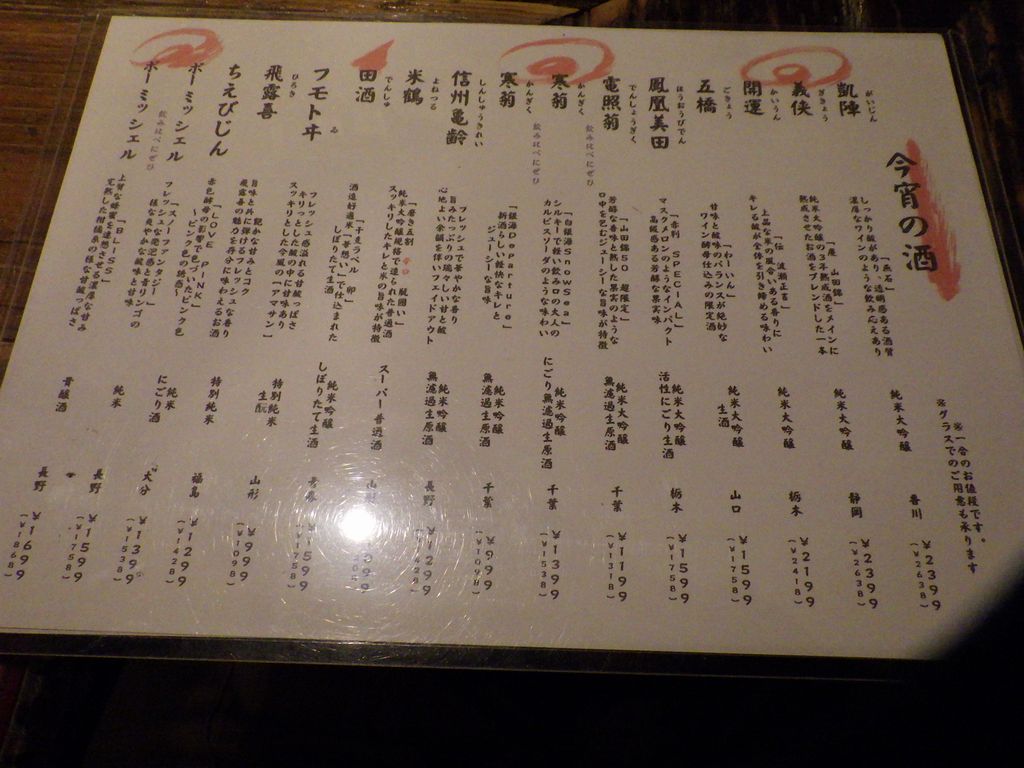 今宵の酒
※一合のお値段です。
※グラスでのご用意も承ります
凱陣
がいじん
「燕石」
しっかり酸があり、透明感ある酒質
濃厚なワインのような飲み応えあり
純米大吟醸
香川
¥2399
(¥2638)
義侠
ぎきょう
「慶 山田錦」
純米大吟醸の3年熟成酒をメインに
熟成させた酒をブレンドした一本
純米大吟醸
静岡
¥2399
(¥2638)
開運
かいうん
「伝 波瀬正吉」
上品な米の風合いある香りに
キレる酸が全体を引き締める味わい
純米大吟醸
栃木
¥2199
(¥2418)
五橋
ごきょう
「わーいん」
甘味と酸味のバランスが絶妙な
ワイン酵母仕込みの限定酒
純米大吟醸
生酒
山口
¥1599
(¥1758)
鳳凰美田
ほうおうびでん
「赤判 SPECIAL」
マスクメロンのようなインパクト
高級感ある芳醇な果実味
純米大吟醸
活性にごり生酒
栃木
¥1599
(¥1758)
電照菊
でんしょうぎく
「山田錦50 超限定」
芳醇な香味と熟した果実のような
口中をもジューシーな旨味が特徴
純米大吟醸
無濾過生原酒
千葉
¥1199
(¥1318)
寒菊
かんぎく
飲み比べにぜひ
「白銀海SnowSea」
シルキーで軽い飲み口の大人の
カルピスソーダのような味わい
純米吟醸
にごり無濾過生原酒
千葉
¥1399
(¥1538)
寒菊
かんぎく
飲み比べにぜひ
「銀海Departure」
新酒らしい軽快なキレと
ジューシーな旨味
純米吟醸
無濾過生原酒
千葉
¥999
(¥1098)
信州亀齢
しんしゅうきれい
フレッシュで華やかな香り
旨みたっぷりの瑞々しい甘と酸
心地よい余韻を伴いフェイドアウト
純米吟醸
無濾過生原酒
長野
¥1299
(¥1428)
米鶴
よねつる
「磨き五割 辛口
純米大吟醸規格で造られた普通酒
スッキリしたキレと米の旨味が特徴
スーパー普通酒
山形
田酒
でんしゅ
「干支ラベル 卯」
酒造好適米「華想い」で仕込まれた
しぼりたて生酒
純米吟醸
しぼりたて生酒
¥1599
(¥1758)
フモトヰ
ゐ
フレッシュ感溢れる甘酸っぱさ
キリっとした酸の中に甘味あり
スッキリとした大人の風の「アマサン」
特別純米
生酛
山形
¥999
(¥1098)
飛露喜
ひろき
艶やかな甘みとコク
旨味と共に弾けるフレッシュな香り
飛露喜の魅力を存分に味わえるお酒
特別純米
福島
¥1299
(¥1428)
ちえびじん
「LOVE PINK」
赤色酵母の影響で色づいたピンク色
～ピンク色の快感～
純米
にごり酒
大分
¥1399
(¥1538)
ボーミッシェル
飲み比べにぜひ
「スノーファンタジー」
フレッシュな発泡感と青リンゴの
様な爽やかな酸味と甘味
純米
長野
¥1599
(¥1758)
ボーミッシェル
「BLISS」
上質な蜂蜜を連想させる濃厚な甘み
完熟した柑橘系の様な甘酸っぱさ
貴醸酒
長野
¥1699
(¥1868)